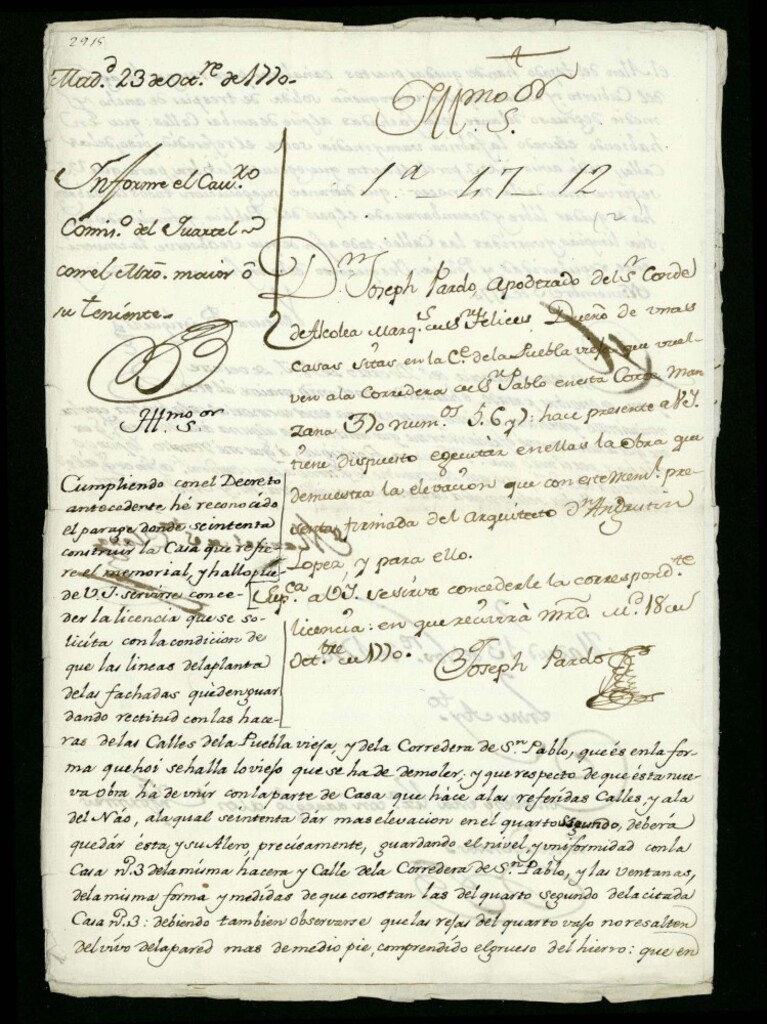 2915
Mad.d 23 de Oct.re de 1770.
Ill.mo S.or
1.a 47 12
Informe el Cav.ro
Comis.o del Quartel
con el Mro. maior ô
su teniente.
Ill.mo S.or
D.n Joseph Pardo, apoderado del S.r Conde
de Alcolea Marq.s de S.n Felices, Dueño de unas
casas sitas en la C.e de la Puebla vieja que vuel-
ven a la Corredera de S.n Pablo en esta Corte Man-
zana 370 num.os 5. 6 y 7: hace presente a V.S.I.
tiene dispuesto egecutar en ellas la Obra que
demuestra la elevacion que con este Mem.l pre-
senta, firmada del Arquitecto D.n Augustin
Lopez, y para ello.
Sup.ca a V.S.I. se sirva concederle la correspond.te
licencia: en que recivirá Mrd. M.d 18 de
Oct.bre de 1770.
Joseph Pardo
Cumpliendo con el Decreto
antecedente hé reconocido
el parage donde se intenta
construir la Casa que refie-
re el memorial, y hallo pue-
de V.S.I. servirse conce-
der la licencia que se so-
licíta con la condicion de
que las lineas de la planta
de las fachadas quèden guar
dando rectitud con las hace-
ras de las Calles de la Puebla vieja, y de la Corredera de S.n Pablo, que és en la for-
ma que hoi se halla lo viejo que se ha de demoler; y que respecto de que ésta nue-
va Obra hà de vnir con la parte de Casa que hàce a las referidas Calles, y a la
del Náo, a la qual se intenta dar mas elevacion en el quarto segundo, deberá
quedár ésta y su Alero, precisamente, guardando el nivel, y uniformidad con la
Casa nº. 3 de la misma hácera y Calle de la Corredera de S.n Pablo, y las ventanas,
de la misma forma y medidas de que constan las del quarto segundo de la citada
Casa nº. 3: debiendo tambien observarse que las rejas del quarto vajo no resalten
del vivo de la pared mas de medio pie, comprendído el grueso del hierro: que en